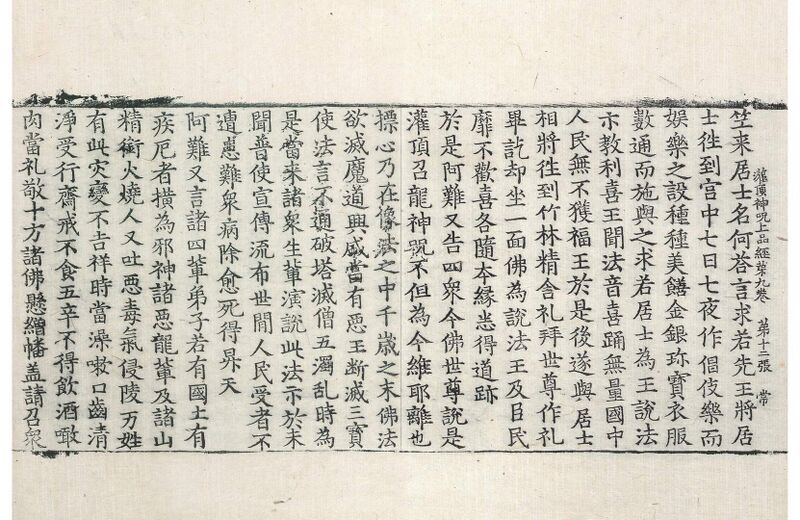 灌頂神呪上品經苐九卷　苐十二張　常
竺来居士名何荅言求若先王將居
士徃到宫中七日七夜作倡伎樂而
娯樂之設種種美饍金銀珎寶衣服
數通而施與之求若居士為王說法
示教利喜王聞法音喜踊無量國中
人民無不獲福王於是後遂與居士
相將徃到竹林精舎礼拜世尊作礼
畢訖却坐一面佛為說法王及臣民
靡不歡喜各随夲緣悉得道跡
於是阿難又告四衆今佛世尊說是
灌頂召龍神呪不但為今維耶離也
摽心乃在像法之中千歳之末佛法
欲滅魔道興盛當有惡王断滅三寶
使法言不通破塔滅僧五濁乱時為
是當来諸衆生軰演說此法示於末
聞普使宣傳流布世間人民受者不
遭患難衆病除愈死得昇天
阿難又言諸四軰弟子若有國土有
疾厄者橫為邪神諸惡龍軰及諸山
精衝火燒人又吐惡毒氣侵陵万姓
有此灾變不吉祥時當澡嗽口齒清
淨受行齋戒不食五辛不得飲酒噉
肉當礼敬十方諸佛懸繒幡盖請召衆